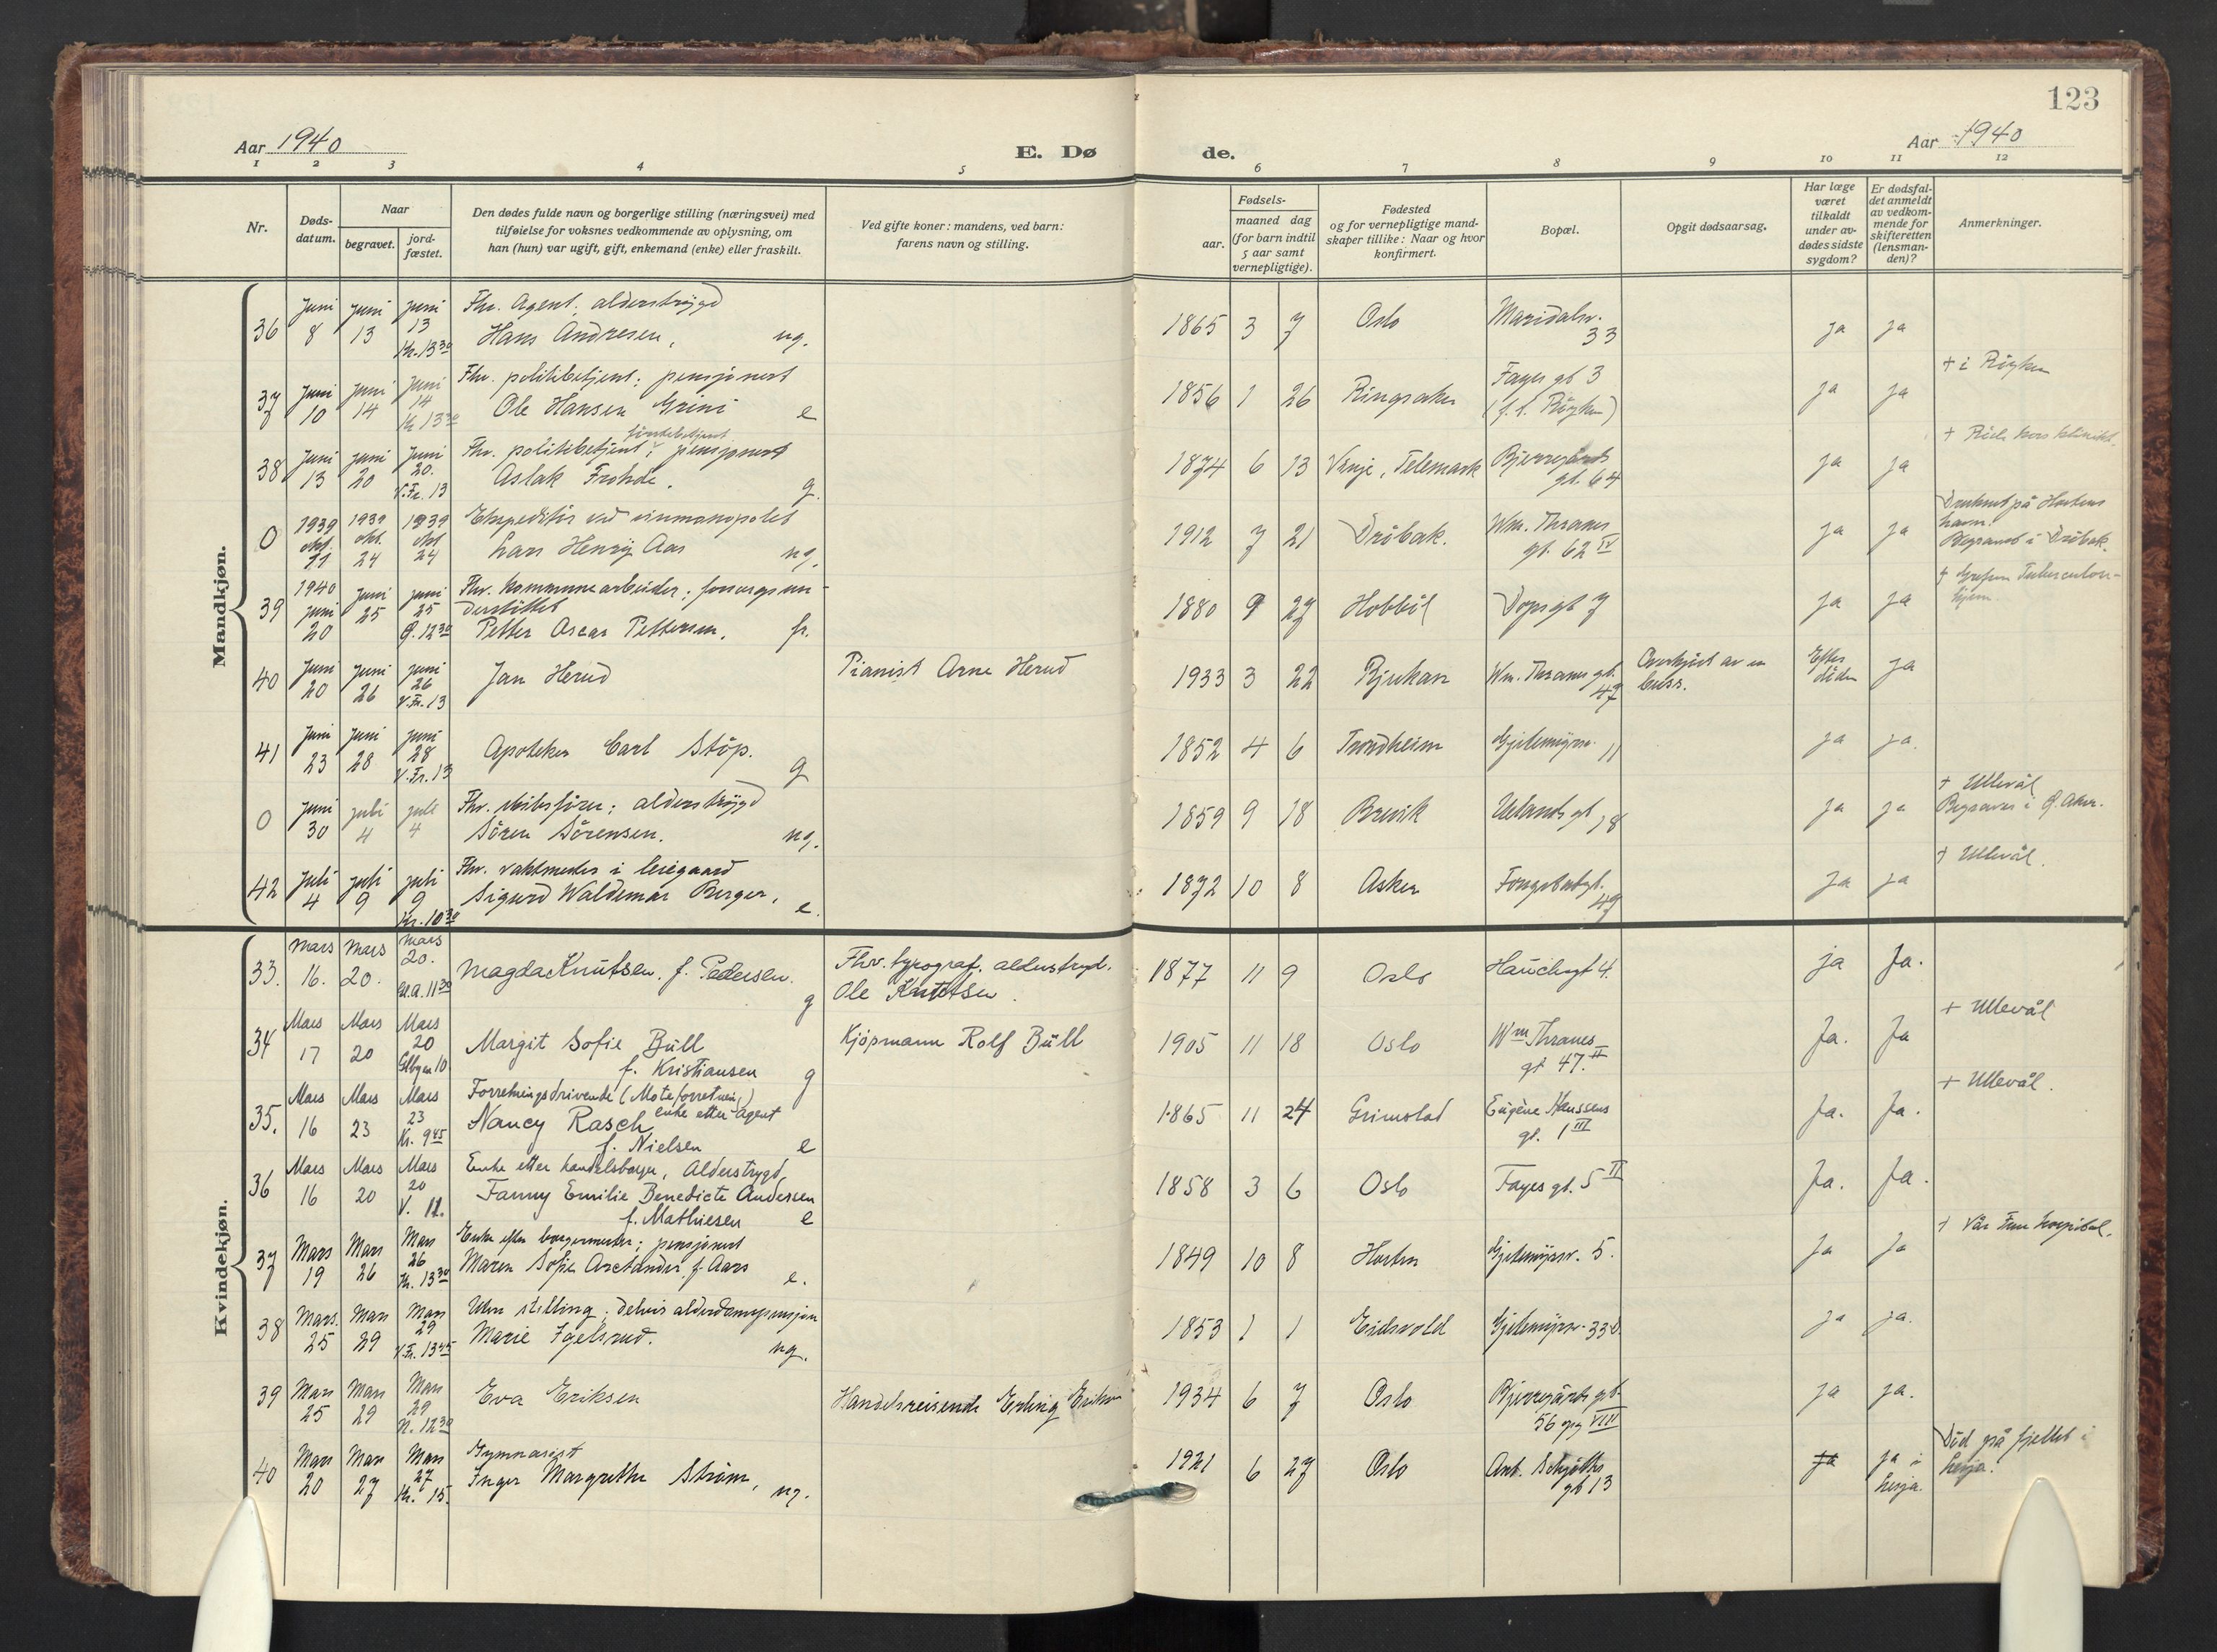 123
Aar 1940
E. Dø
de.
Aar 1940
1 2 3 4 5 6 7 8 9 10 11 12
Nr.
Døds-
datum.
Naar
begravet.
jord-
fæstet.
Den dødes fulde navn og borgerlige stilling (næringsvei) med
tilføielse for voksnes vedkommende av oplysning, om
han (hun) var ugift, gift, enkemand (enke) eller fraskilt.
Ved gifte koner: mandens, ved barn:
farens navn og stilling.
Fødsels-
aar.
maaned dag
(for barn indtil
5 aar samt
vernepligtige).
Fødested
og for vernepligtige mand-
skaper tillike: Naar og hvor
konfirmert.
Bopæl.
Opgit dødsaarsag.
Har læge
været
tilkaldt
under av-
dødes sidste
sygdom?
Er dødsfal-
det anmeldt
av vedkom-
mende for
skifteretten
(lensman-
den)?
Anmerkninger.
Mandkjøn.
36 Juni 8 Juni 13 Juni 13 Kr. 13 30
Fhv. Agent; alderstrygd
Hans Andresen, ug.
1865 3 7 Oslo Maridalsv. 33 ja ja
37 Juni 10 Juni 14 Juni 14 Kr 13 30
Fhv. politibetjent; pensjonert
Ole Hansen Grini e
1856 1 26 Ringsaker Fayes gt 3 (f. t. Röyken) ja ja + i Röyken
38 Juni 13 Juni 20 Juni 20. V.Fr. 13
Fhv. politibetjent; pensjonert
Aslak Frohde. g.
1874 6 13 Vinje, Telemark Bjerregårds gt. 64 ja ja + Röde kors klinikk.
0 1939 okt. 1939 okt. 24 1939 okt 24
Ekspeditör ved vinmonopolet
Lars Henry Aas ug.
1912 7 21 Dröbak. Wm. Thranes gt. 62 IV ja ja
Druknet på Hortens
havn.
Begravet i Dröbak.
39 1940 juni 20 Juni 25 juni 25 G. 12 30
Fhv. Kommunearbeider; forsorgsun-
derstöttet
Petter Oscar Pettersen. fr.
1880 9 27 Hobböl Dopsgt 7 ja ja
+ Grefsen Tuberculose-
hjem
40 Juni 20 Juni 26 Juni 26 V.Fr. 13
Jan Herud
Pianist Arne Herud
1933 3 22 Rjukan Wm. Thranes gt. 47
Overkjört av en
buss.
Efter döden ja
41 Juni 23 Juni 28 juni 28 V.Fr. 13
Apoteker Carl Stöp. g
1852 4 6 Trondheim Gjetemyrsv. 11 ja ja.
0 Juni 30 juli 4 juli 4
Fhv. skibsförer; alderstrygd
Sören Sörensen. ug.
1859 9 18 Brevik Uelands gt 18 ja ja
+ Ullevål
Begraves i Ø. Aker.
42 Juli 4 juli 9 juli 9 Kr. 10 30
Fhv. vaktmester i leiegaard
Sigurd Waldemar Berger, e.
1872 10 8 Asker 49 ja ja + Ullevål.
Kvindekjøn.
33. Mars 16. Mars 20. Mars 20. 11 30
Magda Knutsen, f. Pedersen. g
Fhv. typograf. alderstrygd.
Ole Knutsen.
1877 11 9 Oslo Hauchsgt 4. ja Ja.
34 Mars 17 Mars 20 Mars 20 10
Margit Sofie Büll
f. Kristiansen g
Kjöpmann Rolf Büll
1905 11 18 Oslo Wm Thranes gt 47. II Ja. Ja + Ullevål
35. Mars 16 Mars 23 Mars 23 Kr. 9 45
Forretningsdrivende (Moteforretning)
Nancy Rasch enke etter agent
f. Nielsen e
1865 11 24 Grimstad Eugène Hanssens gt. 1 III Ja. Ja. + Ullevål.
36 Mars 16 Mars 20 Mars 20 V. 12.
Enke etter handelsborger, Alderstrygd,
Fanny Emilie Benedicte Andersen
f. Mathiesen e
1858 3 6 Oslo Fayes gt. 5 II Ja. Ja.
37 Mars 19 Mars 26 Mars 26 Kr. 13 30
Enke efter borgermester; pensjonert
Maren Sofie Arctander, f. Aars e.
1849 10 8 Horten Gjetemyrsv. 5. ja ja + Vår Frue hospital.
38 Mars. 25 Mars 29 Mars 29 V.Fr. 13 45
Uten stilling; delvis alderdomspensjon
Marie Igelsrud. ug.
1853 1 1 Eidsvold Gjetemyrsv. 33 ja ja.
39 Mars 25 Mars 29 Mars 29 N. 12 30
Eva Eriksen
Handelsreisende Erling Eriksen
1934 6 7 Oslo Bjerregårds gt. 56 VIII ja ja.
40 Mars 20 Mars 27 Mars 27 Kr. 15.
Gymnasist
Inger Margrethe Ström, ug.
1921 6 27 Oslo Ant. Schjöths gt 13 ja ja i Lesja.
Död på fjellet i
Lesja.